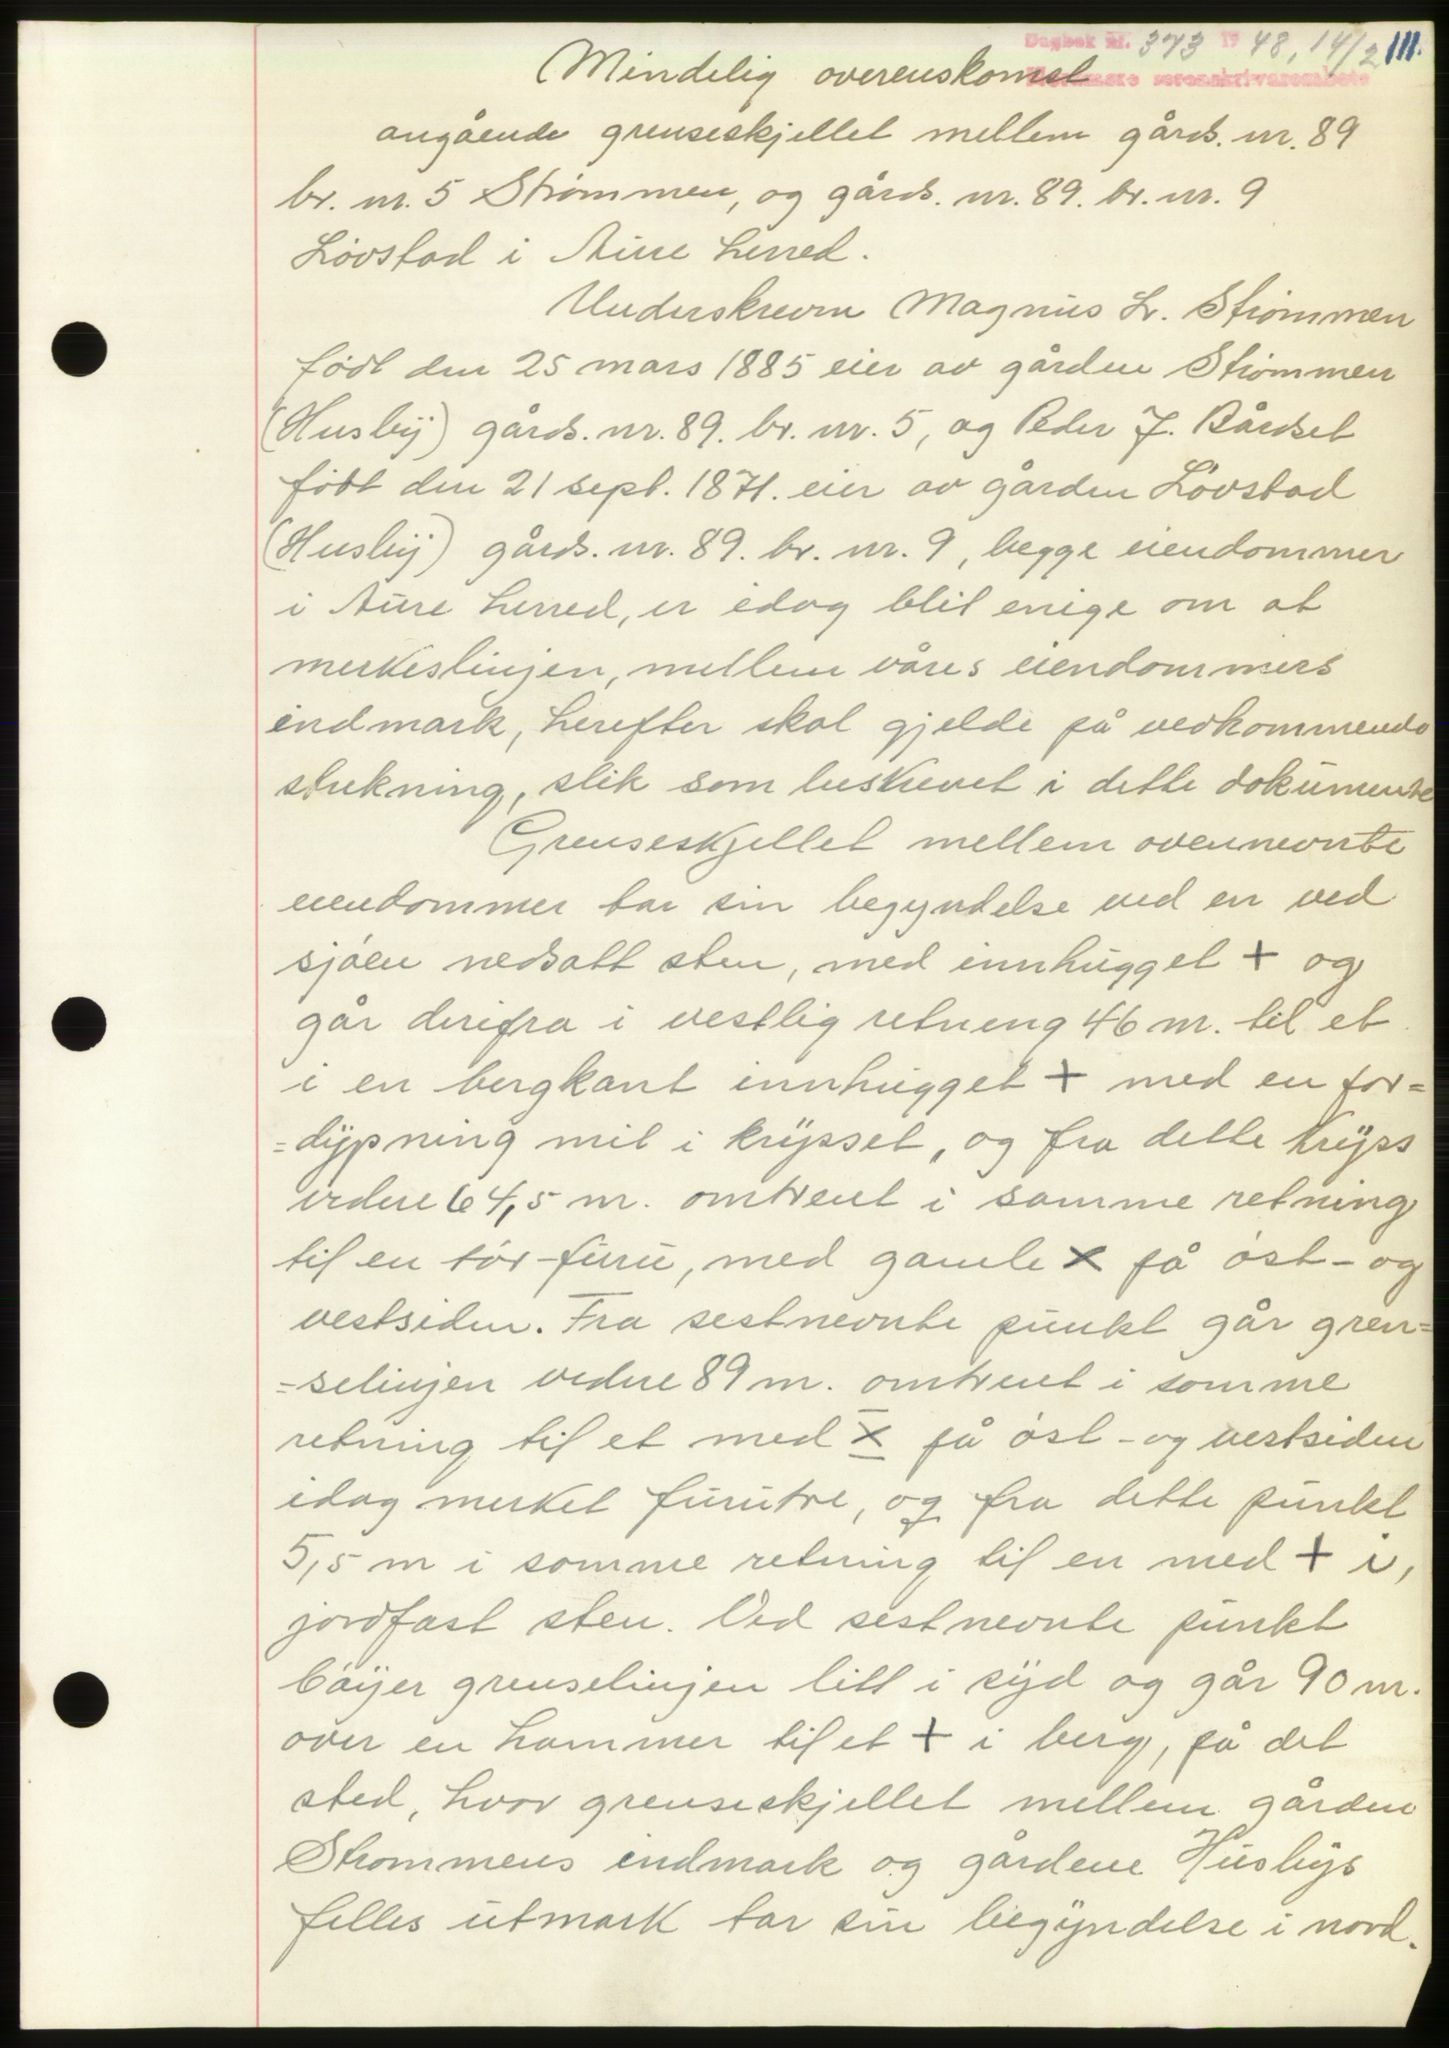 Dagbok nr. 373 19 48, 14/2 111.
Nordmøre sorenskriverembete
Mindelig overenskomst
angående grenseskjellet mellem gårds. nr. 89
br. nr. 5 Strømmen, og gårds. nr. 89. br. nr. 9
Løvstad i Aure herred.
Underskrevne Magnus Lr. Strømmen
født den 25 mars 1885 eier av gården Strømmen
(Husby) gårds. nr. 89. br. nr. 5, og Peder J. Bårdset
født den 21 sept. 1871. eier av gården Løvstad
(Husby) gårds. nr. 89. br. nr. 9, begge eiendommer
i Aure herred, er idag blit enige om at
merkeslinjen, mellem våres eiendommers
indmark, herefter skal gjelde på vedkommende
strekning, slik som beskrevet i dette dokumente
Grenseskjellet mellem ovennevnte
eiendommer tar sin begyndelse ved en ved
sjøen nedsatt sten, med innhugget + og
går derifra i vestlig retning 46 m. til et
i en bergkant innhugget + med en for=
=dypning mit i krysset, og fra dette kryss
videre 64,5 m. omtrent i samme retning
til en tør-furu, med gamle x på øst- og
vestsiden. Fra sestnevnte punkt går gren=
=selinjen videre 89 m. omtrent i samme
retning til et med x på øst- og vestsiden
idag merket furutre, og fra dette punkt
5,5 m i samme retning til en med + i,
jordfast sten. Ved sestnevnte punkt
bøyer grenselinjen litt i syd og går 90 m.
over en hammer til et + i berg, på det
sted, hvor grenseskjellet mellem gården
Strømmens indmark og gårdene Husbys
felles utmark tar sin begyndelse i nord.